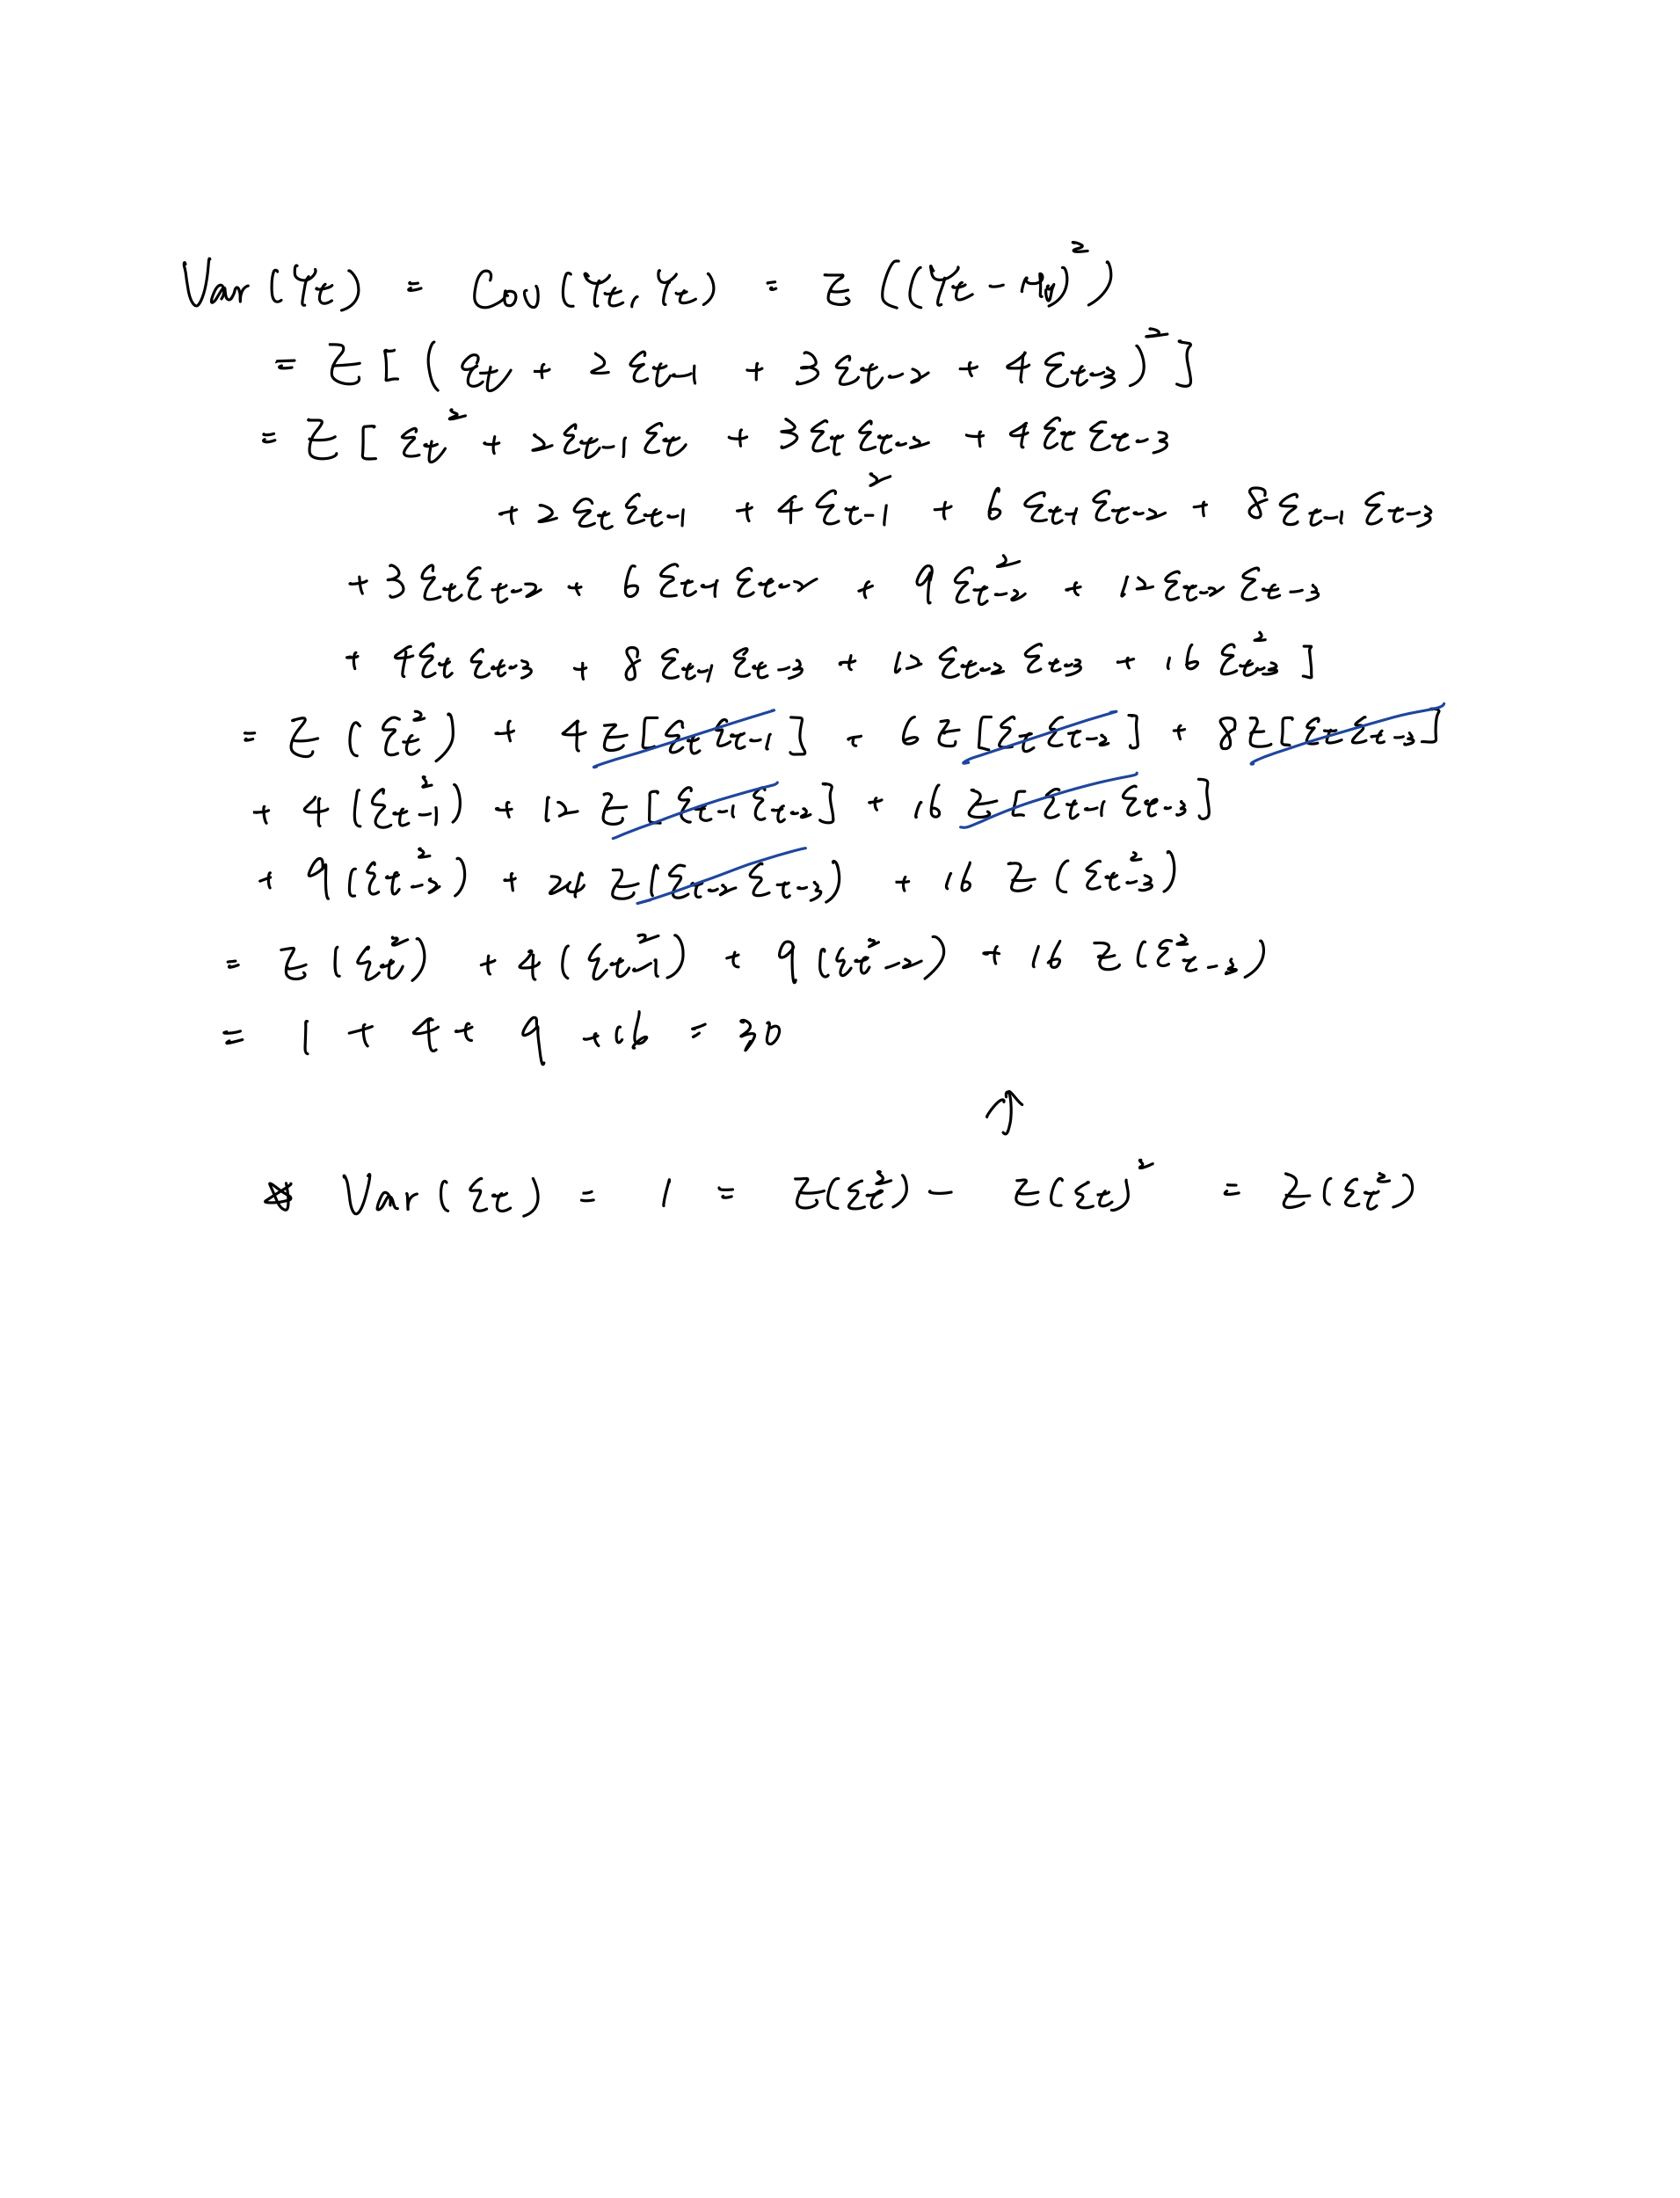 Var (Yt) = Cov (Yt, Yt) = E ((Yt - μy)²)
= E [ (εt + 2 εt-1 + 3 εt-2 + 4 εt-3)² ]
= E [ εt² + 2εt-1 εt + 3 εt εt-2 + 4 εt εt-3
+ 2 εt εt-1 + 4 εt-1² + 6 εt-1 εt-2 + 8 εt-1 εt-3
+ 3 εt εt-2 + 6 εt-1 εt-2 + 9 εt-2² + 12 εt-2 εt-3
+ 4εt εt-3 + 8 εt-1 εt-3 + 12 εt-2 εt-3 + 16 εt-3² ]
= E (εt²) + 4 E[εt εt-1] + 6 E[εt εt-2] + 8 E[εt εt-3]
+ 4 (εt-1²) + 12 E[εt-1 εt-2] + 16 E[εt-1 εt-3]
+ 9(εt-2²) + 24 E(εt-2 εt-3) + 16 E (εt-3²)
= E (εt²) + 4 (εt-1²) + 9 (εt-2²) + 16 E (εt-3²)
= 1 + 4 + 9 + 16 = 30
↑
☆ Var (εt) = 1 = E(εt²) - E(εt)² = E(εt²)